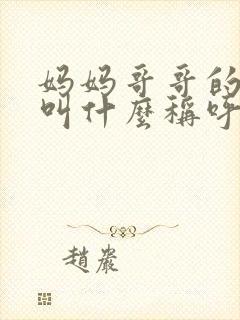 妈妈哥哥的
叫什麼稱呼
趙嚴